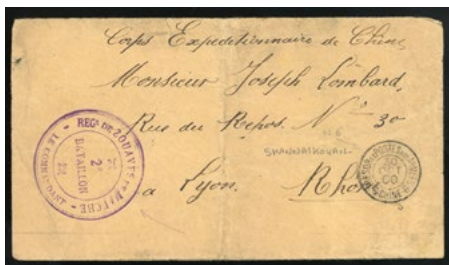 Corps Expeditionnaire de Chine
Monsieur Joseph Lombard,
Rue du Repos. N° 30
SHANHAIKOUAN
a Lyon. Rhone
REGt DE ZOUAVES DE MARCHE
LE COMMANDANT
2e
BATAILLON
TRESOR ET POSTES
CHINE